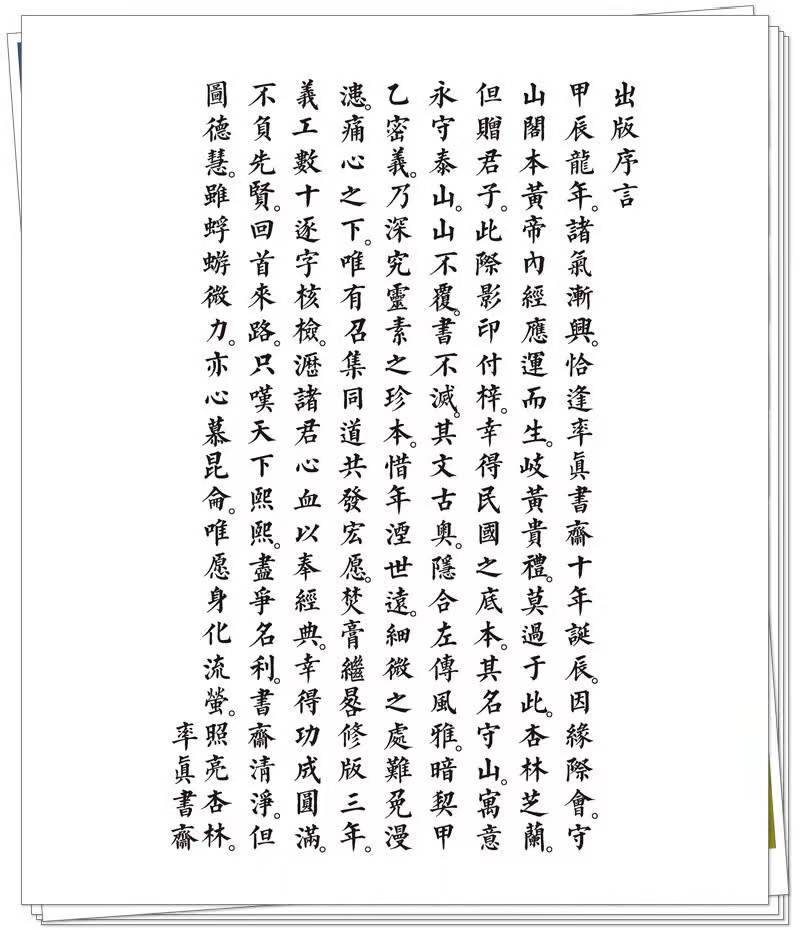 出版序言
甲辰龍年。諸氣漸興。恰逢率眞書齋十年誕辰。因緣際會。守
山閣本黃帝內經應運而生。岐黃貴禮。莫過于此。杏林芝蘭。
但贈君子。此際影印付梓。幸得民國之底本。其名守山。寓意
永守泰山。山不覆。書不滅。其文古奧。隱合左傳風雅。暗契甲
乙密義。乃深究靈素之珍本。惜年湮世遠。細微之處難免漫
漶。痛心之下。唯有召集同道共發宏愿。焚膏繼晷修版三年。
義工數十逐字核檢。瀝諸君心血以奉經典。幸得功成圓滿。
不負先賢。回首來路。只嘆天下熙熙。盡爭名利。書齋清淨。但
圖德慧。雖蜉蝣微力。亦心慕昆侖。唯愿身化流螢。照亮杏林。
率眞書齋